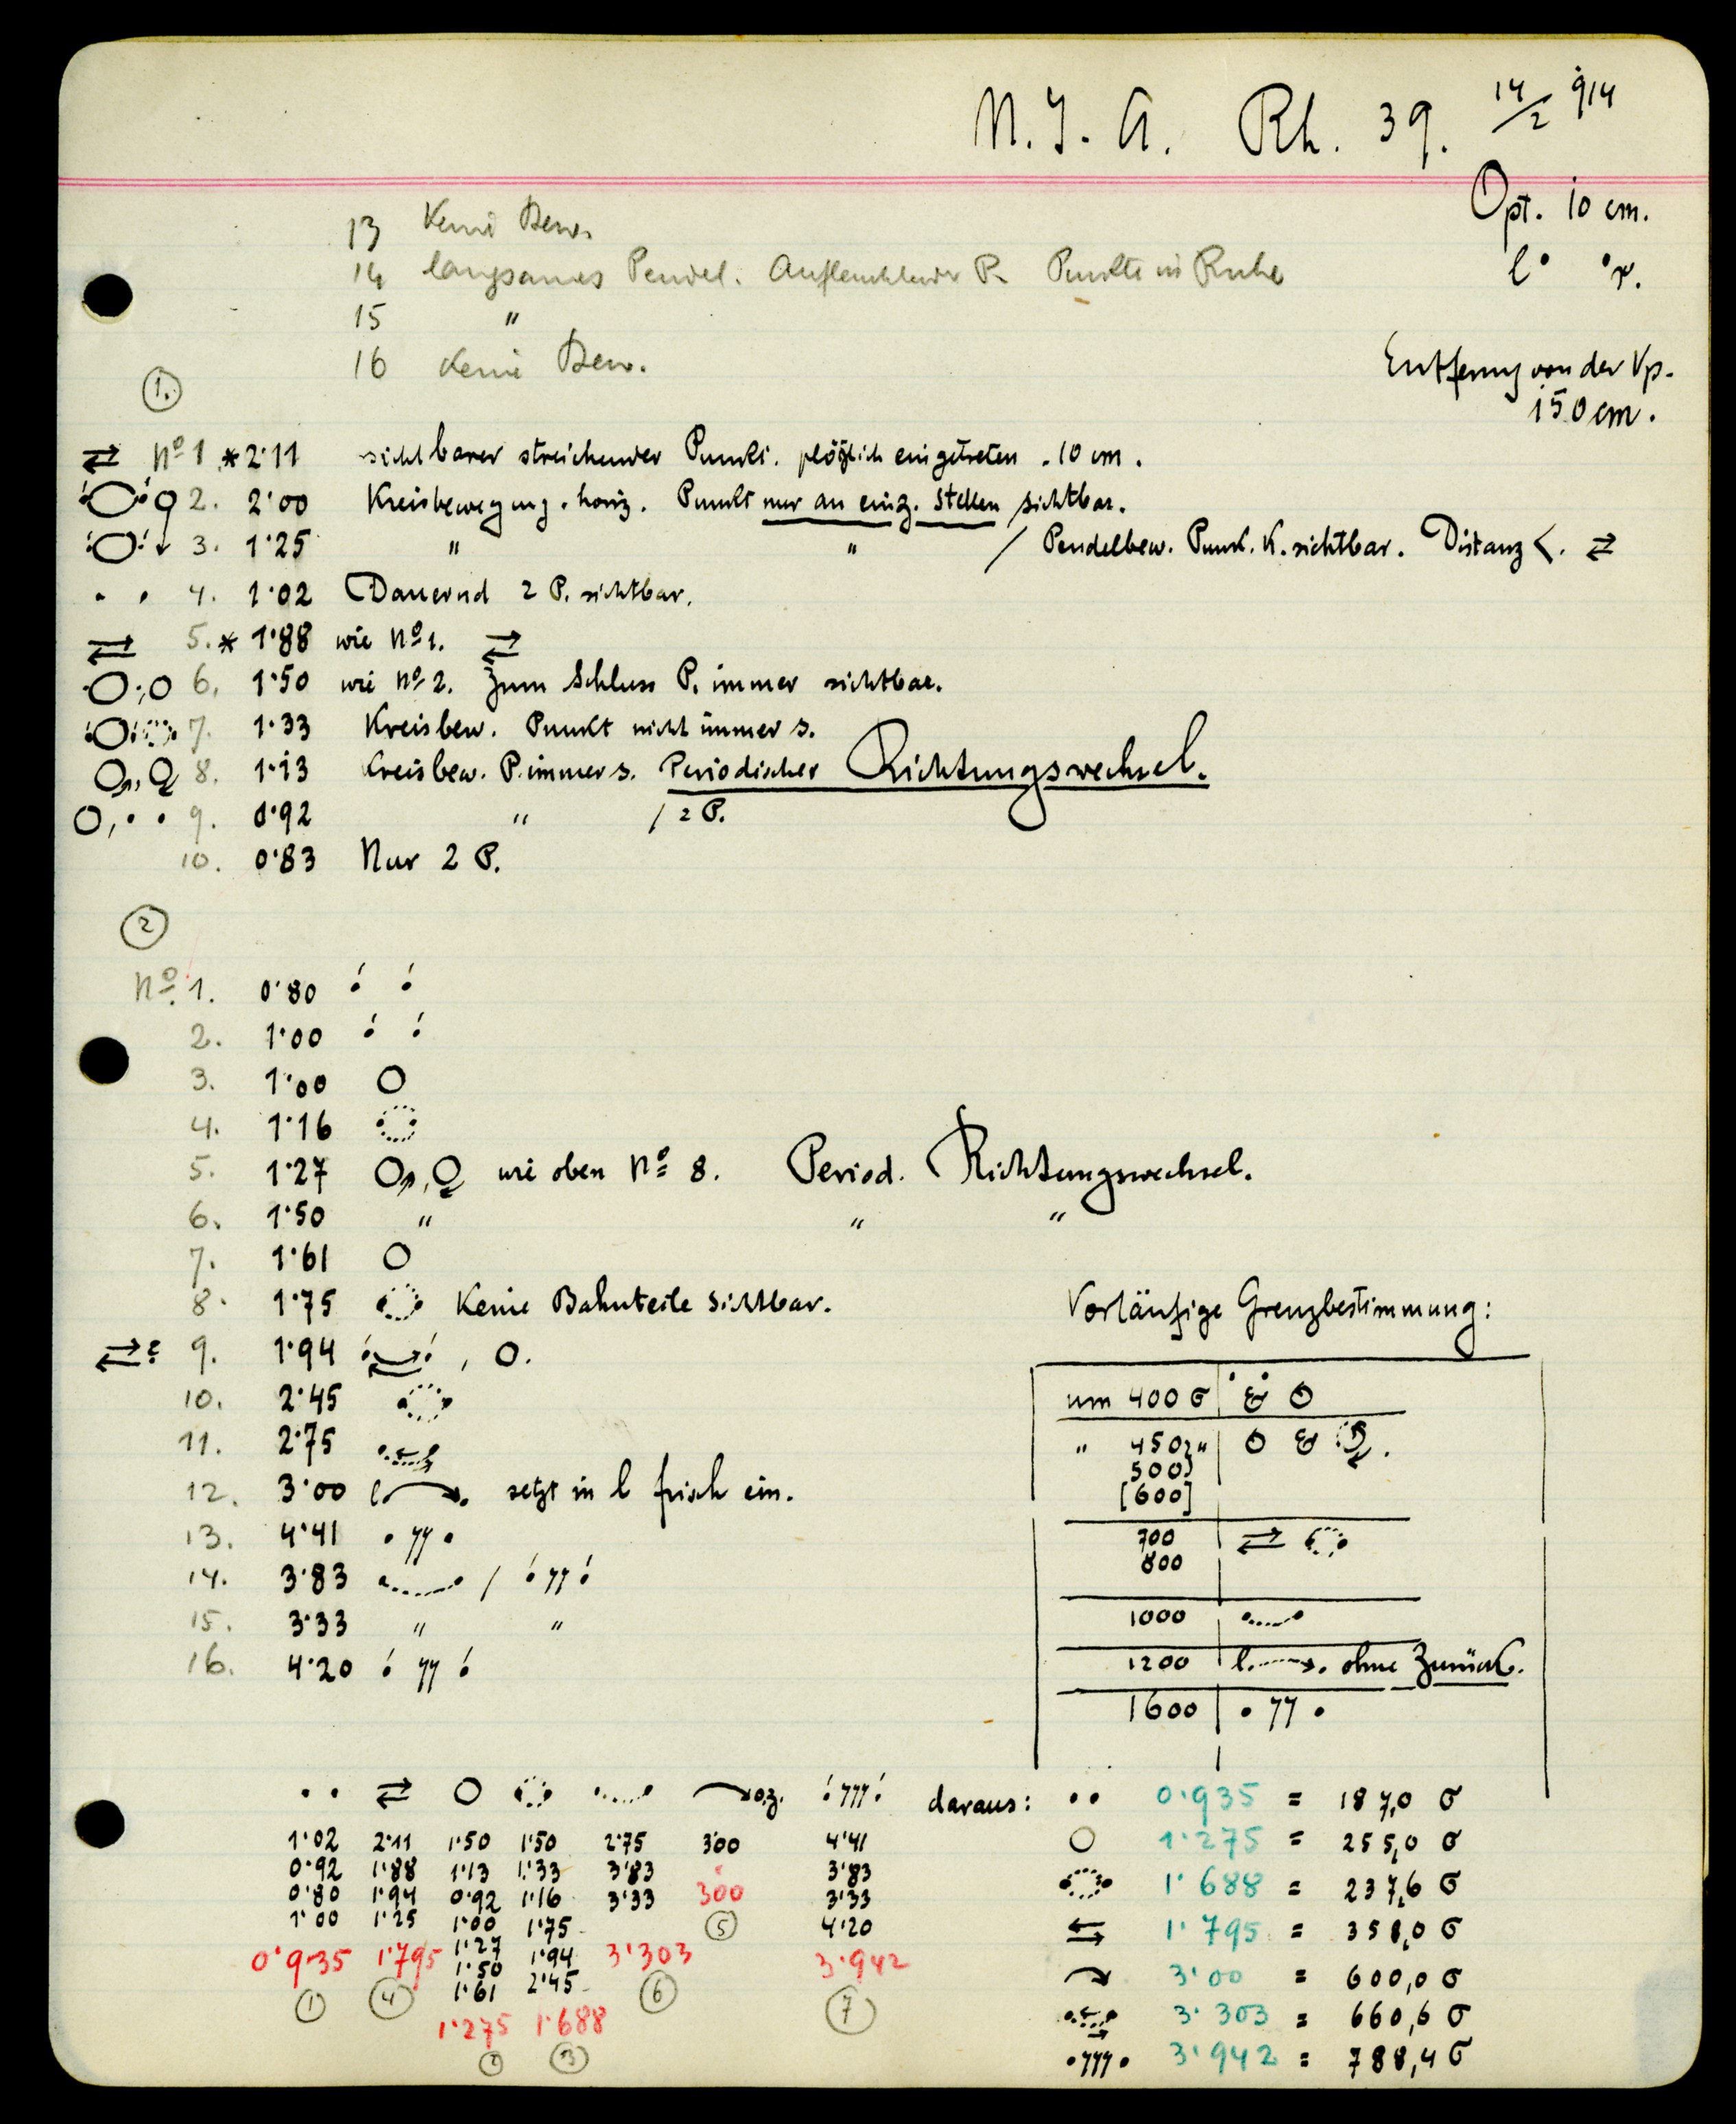 N. J. A. Rh. 39. 14/2 914
Opt. 10 cm.
l • • r.
Entfernung von der Vp.
150 cm.
13 Keine Bew.
14 langsames Pendel. Aufleuchtender P. Punkte in Ruhe
15 "
16 Keine Bew.
1.
⇄ No 1 * 2·11 sichtbarer streichender Punkt. plötzlich eingetreten. 10 cm.
2. 2·00 Kreisbewegung. horiz. Punkt nur an einz. Stellen sichtbar.
3. 1·25 " " / Pendelbew. Punkt. K. sichtbar. Distanz <. ⇄
• • 4. 1·02 Dauernd 2 P. sichtbar.
⇄ 5. * 1·88 wie No 1. ⇄
6. 1·50 wie No 2. Zum Schluss P. immer sichtbar.
7. 1·33 Kreisbew. Punkt nicht immer s.
8. 1·13 Kreisbew. P. immer s. Periodischer Richtungswechsel.
O, • • 9. 0·92 " / 2 P.
10. 0·83 Nur 2 P.
2
No. 1. 0·80
2. 1·00
3. 1·00 O
4. 1·16
5. 1·27 wie oben No 8. Period. Richtungswechsel.
6. 1·50 " " "
7. 1·61 O
8. 1·75 Keine Bahnteile sichtbar.
⇄ 9. 1·94 , O.
10. 2·45
11. 2·75
12. 3·00 l setzt in l frisch ein.
13. 4·41 • 77 •
14. 3·83 / 77
15. 3·33 " "
16. 4·20 77
Vorläufige Grenzbestimmung:
um 400 σ
" 450 "
500
[600]
700 ⇄
800
1000
1200 l ohne Zurück.
1600 • 77 •
• • ⇄ O o.z. 777
1·02 2·11 1·50 1·50 2·75 3·00 4·41
0·92 1·88 1·13 1·33 3·83 3·83
0·80 1·94 0·92 1·16 3·33 300 3·33
1·00 1·25 1·00 1·75 5 4·20
1·27 1·94
1·50 2·45
1·61
0·935 1·795 3·303 3·942
1 4 6 7
1·275 1·688
2 3
daraus: • • 0·935 = 187,0 σ
O 1·275 = 255,0 σ
1·688 = 237,6 σ
⇆ 1·795 = 358,0 σ
3·00 = 600,0 σ
3·303 = 660,6 σ
• 777 • 3·942 = 788,4 σ